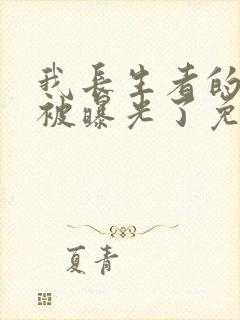 我长生者的
被曝光了免
夏青